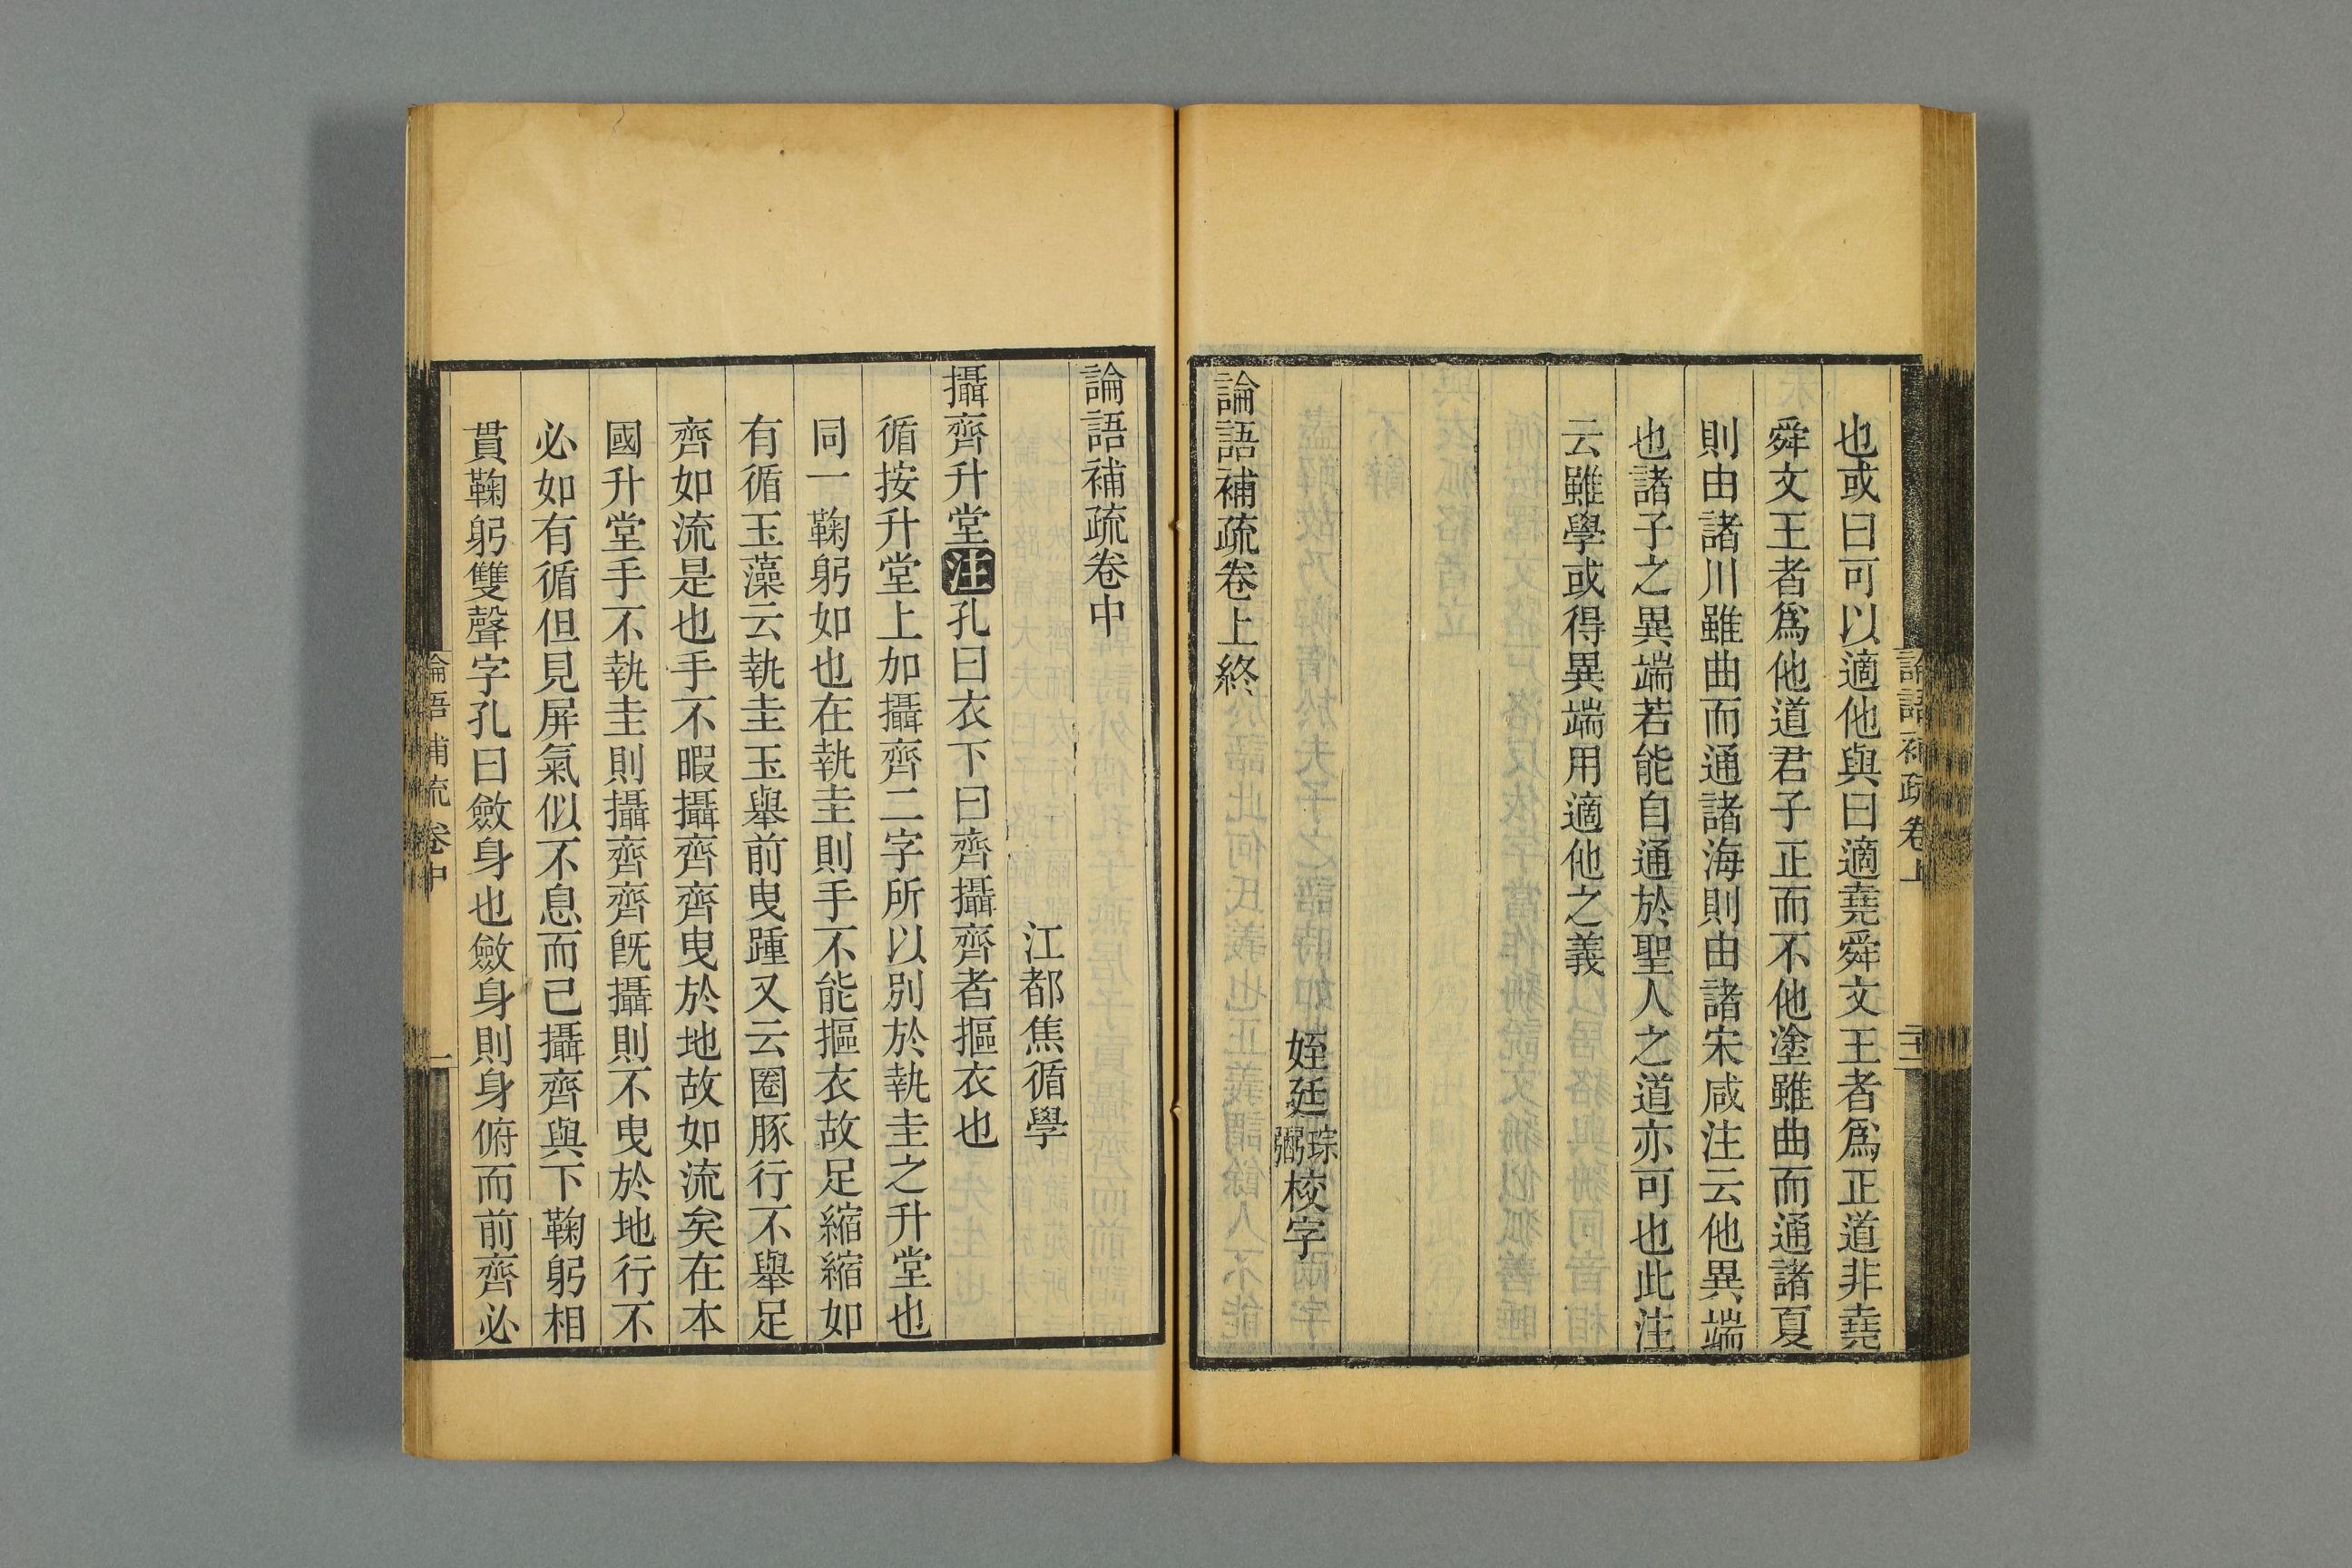 論語補疏卷上
二十二
也或曰可以適他與曰適堯舜文王者爲正道非堯
舜文王者爲他道君子正而不他塗雖曲而通諸夏
則由諸川雖曲而通諸海則由諸宋咸注云他異端
也諸子之異端若能自通於聖人之道亦可也此注
云雖學或得異端用適他之義
姪廷琮弼校字
論語補疏卷上終
論語補疏卷中
江都焦循學
攝齊升堂注孔曰衣下曰齊攝齊者摳衣也
循按升堂上加攝齊二字所以別於執圭之升堂也
同一鞠躬如也在執圭則手不能摳衣故足縮縮如
有循玉藻云執圭玉舉前曳踵又云圈豚行不舉足
齊如流是也手不暇攝齊齊曳於地故如流矣在本
國升堂手不執圭則攝齊齊旣攝則不曳於地行不
必如有循但見屏氣似不息而已攝齊與下鞠躬相
貫鞠躬雙聲字孔曰斂身也斂身則身俯而前齊必
論語補疏 卷中
一